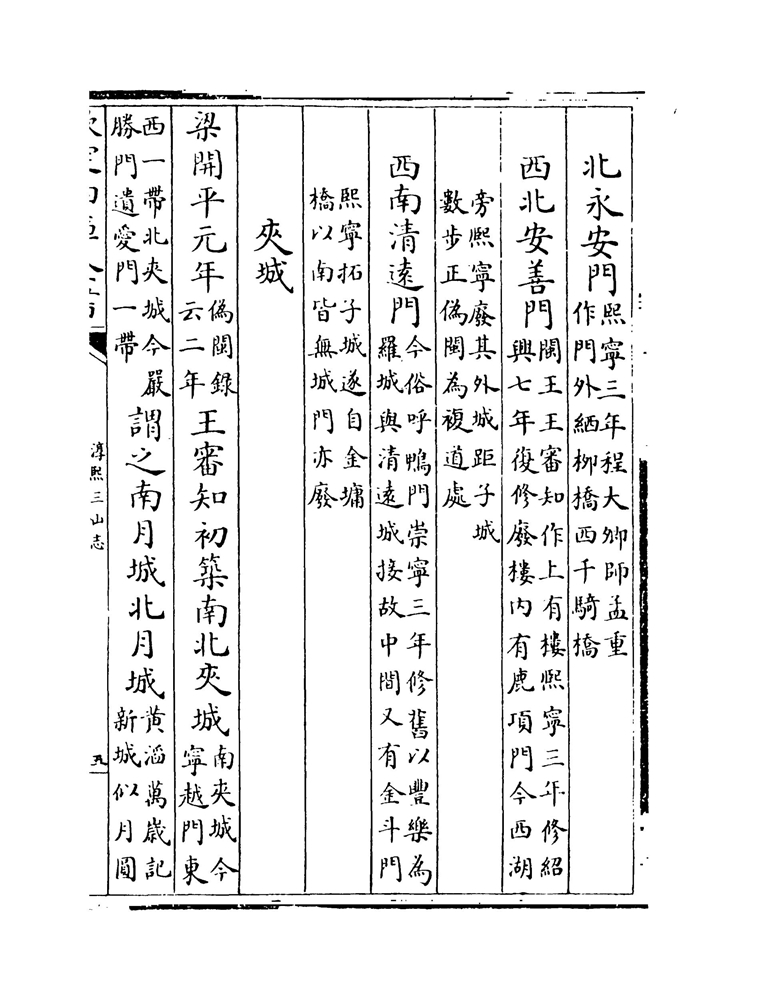 北永安門熙寧三年程大卿師孟重
作門外細柳橋西千騎橋
西北安善門閩王王審知作上有樓熙寧三年修紹
興七年復修廢樓内有鹿項門今西湖
旁熙寧廢其外城距子城
數步正偽閩為複道處
西南清遠門今俗呼鴨門崇寧三年修舊以豐樂為
羅城與清遠城接故中間又有金斗門
熙寧拓子城遂自金墉
橋以南皆無城門亦廢
夾城
梁開平元年偽閩錄
云二年王審知初築南北夾城南夾城今
寧越門東
西一帶北夾城今嚴
勝門遺愛門一帶謂之南月城北月城黃滔萬歲記
新城似月圓
淳熙三山志
九